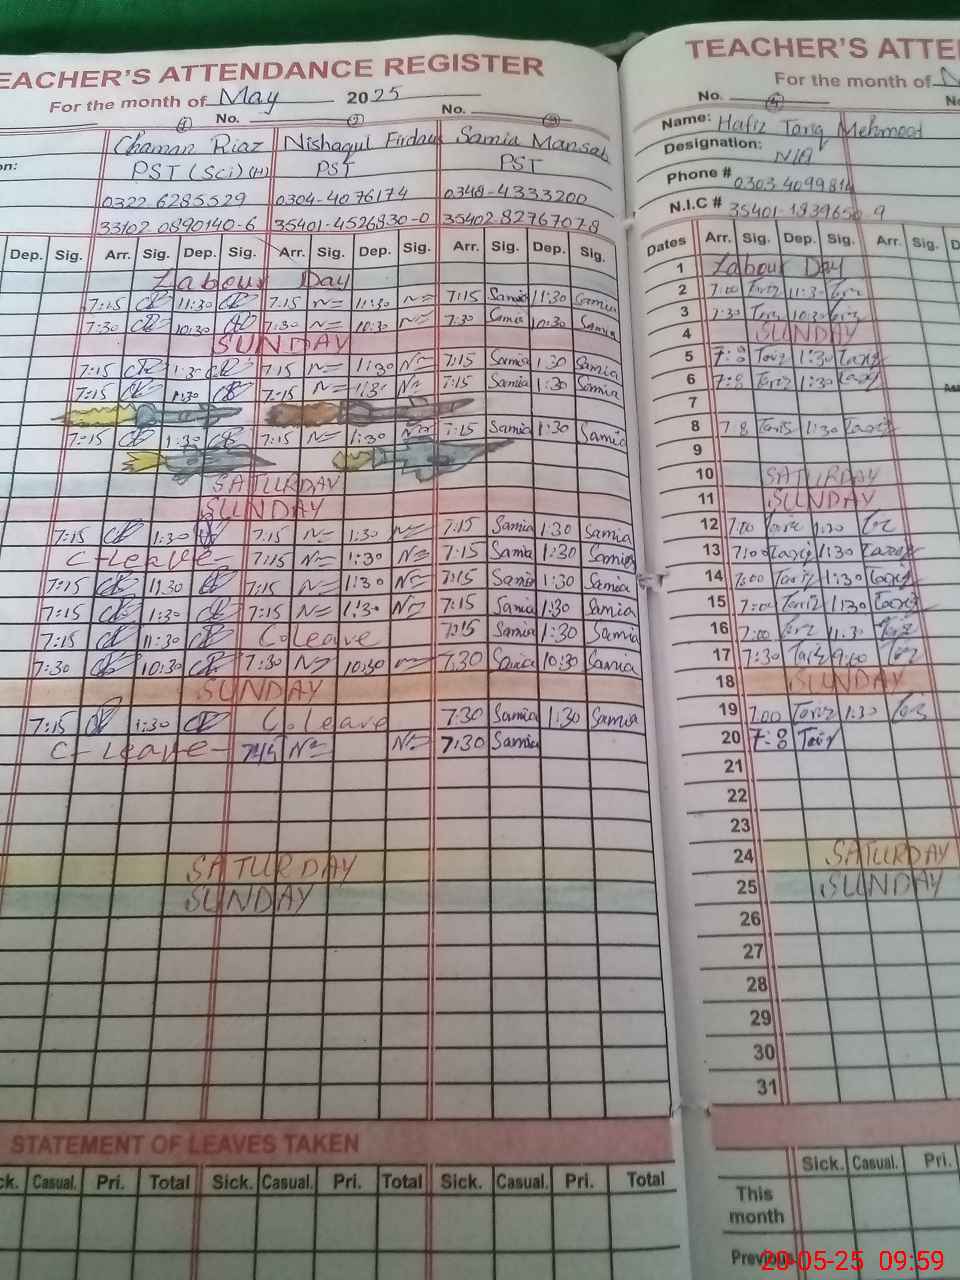 TEACHER'S ATTENDANCE REGISTER
For the month of May 2025
No. No.
Chaman Riaz Nishaqul Firdaus Samia Mansab
PST (Sci) (H) PST PST
0322 6285529 0304-4076174 0348-4333200
33102 0890140-6 35401-4526830-0 35402 82767078
Dep. Sig. Arr. Sig. Dep. Sig. Arr. Sig. Dep. Sig. Arr. Sig. Dep. Sig.
Labour Day
7:15 11:30 7:15 N= 11:30 N= 7:15 Samia 11:30 Samia
7:30 10:30 7:30 N= 10:30 N= 7:30 Samia 10:30 Samia
SUNDAY
7:15 1:30 7:15 N= 1:30 N= 7:15 Samia 1:30 Samia
7:15 1:30 7:15 N= 1:30 N= 7:15 Samia 1:30 Samia
7:15 1:30 7:15 N= 1:30 N= 7:15 Samia 1:30 Samia
SATURDAY
SUNDAY
7:15 1:30 7:15 N= 1:30 N= 7:15 Samia 1:30 Samia
C-Leave 7:15 N= 1:30 N= 7:15 Samia 1:30 Samia
7:15 1:30 7:15 N= 1:30 N= 7:15 Samia 1:30 Samia
7:15 1:30 7:15 N= 1:30 N= 7:15 Samia 1:30 Samia
7:15 11:30 C-Leave 7:15 Samia 1:30 Samia
7:30 10:30 7:30 N= 10:30 7:30 Samia 10:30 Samia
SUNDAY
7:15 1:30 C.Leave 7:30 Samia 1:30 Samia
C-Leave- 7:15 N= N= 7:30 Samia
SATURDAY
SUNDAY
STATEMENT OF LEAVES TAKEN
Casual. Pri. Total Sick. Casual. Pri. Total Sick. Casual. Pri. Total
TEACHER'S ATTE
For the month of
No.
Name: Hafiz Tariq Mehmood
Designation: N/A
Phone # 0303 4099814
N.I.C # 35401-1839650-9
Dates Arr. Sig. Dep. Sig. Arr. Sig.
1 Labour Day
2 7:00 Tariq 11:30 Tariq
3 7:30 Tariq 10:30 Tariq
4 SUNDAY
5 7:8 Tariq 1:30 Tariq
6 7:8 Tariq 1:30 Tariq
7
8 7:8 Tariq 1:30 Tariq
9
10 SATURDAY
11 SUNDAY
12 7:00 Tariq 1:30 Tariq
13 7:00 Tariq 1:30 Tariq
14 7:00 Tariq 1:30 Tariq
15 7:00 Tariq 1:30 Tariq
16 7:00 Tariq 11:30 Tariq
17 7:30 Tariq 9:00 Tariq
18 SUNDAY
19 7:00 Tariq 1:30 Tariq
20 7:8 Tariq
21
22
23
24 SATURDAY
25 SUNDAY
26
27
28
29
30
31
Sick. Casual. Pri.
This
month
Previous
20-05-25 09:59